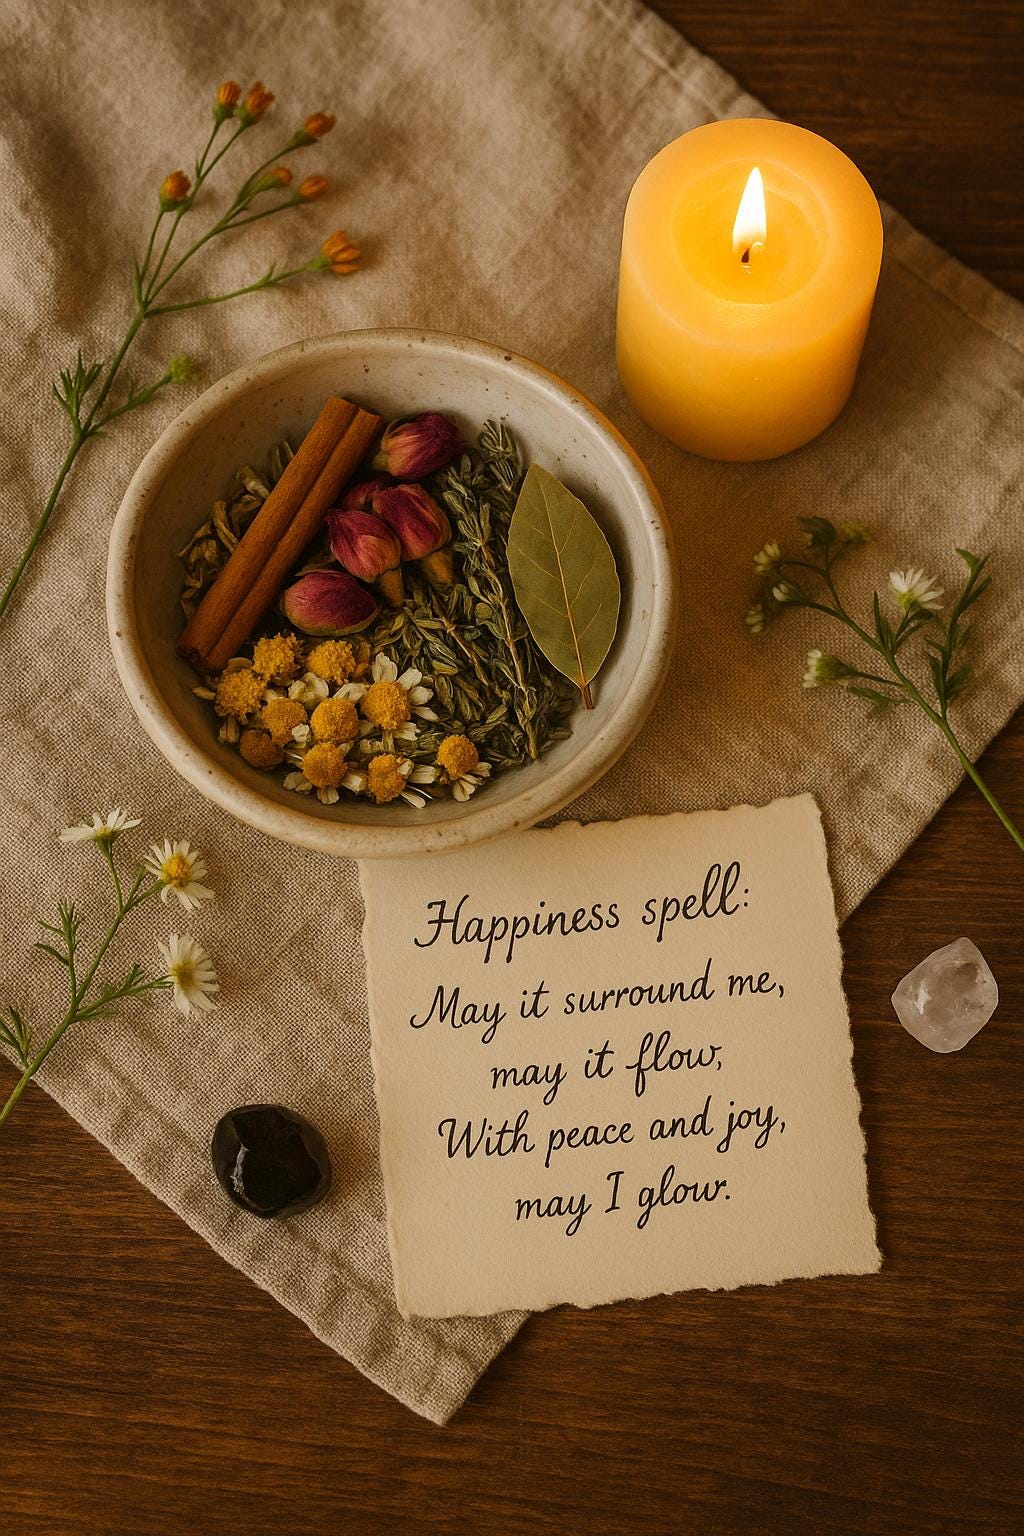 Happiness spell:
May it surround me,
may it flow,
With peace and joy,
may I glow.